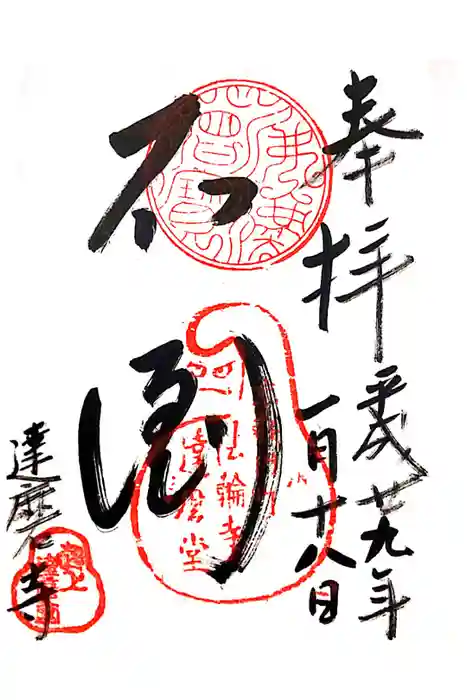 奉拝
平成廿九年
一月十八日
不倒
法輪寺
達磨堂
達磨寺